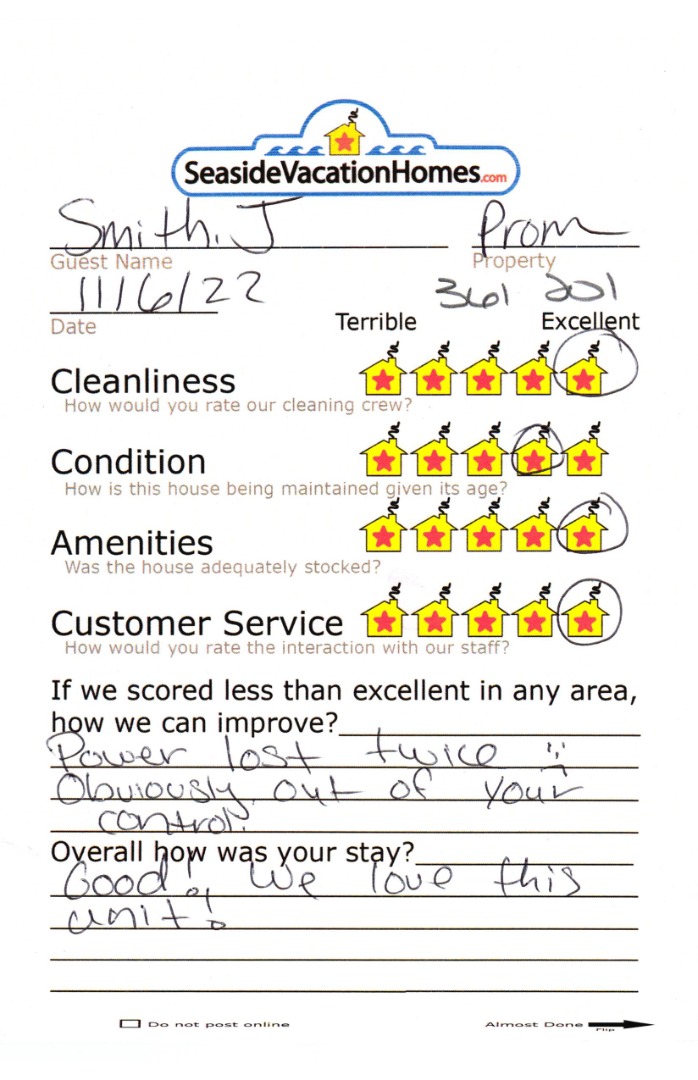 SeasideVacationHomes.com
Smith. J Prom
Guest Name Property
11/6/22 361 201
Date Terrible Excellent
Cleanliness
How would you rate our cleaning crew?
Condition
How is this house being maintained given its age?
Amenities
Was the house adequately stocked?
Customer Service
How would you rate the interaction with our staff?
If we scored less than excellent in any area,
how we can improve?
Power lost twice
Obviously out of your
control!
Overall how was your stay?
Good! We love this
unit!
Do not post online Almost Done
Flip